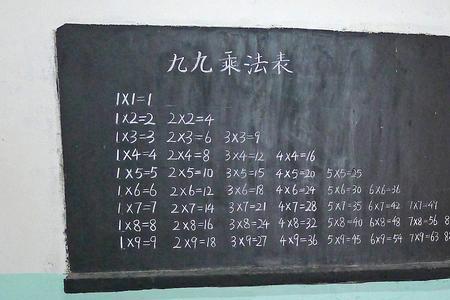 九九乘法表
1×1=1
1×2=2 2×2=4
1×3=3 2×3=6 3×3=9
1×4=4 2×4=8 3×4=12 4×4=16
1×5=5 2×5=10 3×5=15 4×5=20 5×5=25
1×6=6 2×6=12 3×6=18 4×6=24 5×6=30 6×6=36
1×7=7 2×7=14 3×7=21 4×7=28 5×7=35 6×7=42 7×7=49
1×8=8 2×8=16 3×8=24 4×8=32 5×8=40 6×8=48 7×8=56 8
1×9=9 2×9=18 3×9=27 4×9=36 5×9=45 6×9=54 7×9=63 8